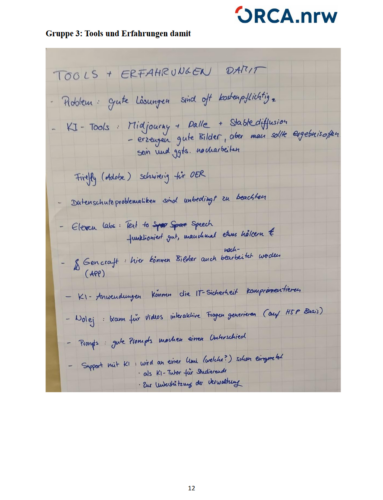 ORCA.nrw
Gruppe 3: Tools und Erfahrungen damit
TOOLS + ERFAHRUNGEN DAMIT
- Problem: gute Lösungen sind oft kostenpflichtig.
- KI-Tools: Midjourny + Dalle + Stablediffusion
- erzeugen gute Bilder, aber man sollte ergebnisoffen
sein und ggfs. nacharbeiten
Firefly (Adobe) schwierig für OER
- Datenschutzproblematiken sind unbedingt zu beachten
- Eleven labs: Text to Speech
funktioniert gut, manchmal etwas hölzern
- Gencraft: hier können Bilder auch nachbearbeitet werden
(APP)
- KI-Anwendungen können die IT-Sicherheit kompromentieren
- Nolej: kann für Videos interaktive Fragen generieren (auf H5P Basis)
- Prompts: gute Prompts machen einen Unterschied
- Support mit KI: wird an einer Uni (welche?) schon eingesetzt
· als KI-Tutor für Studierende
· Zur Unterstützung der Verwaltung
12